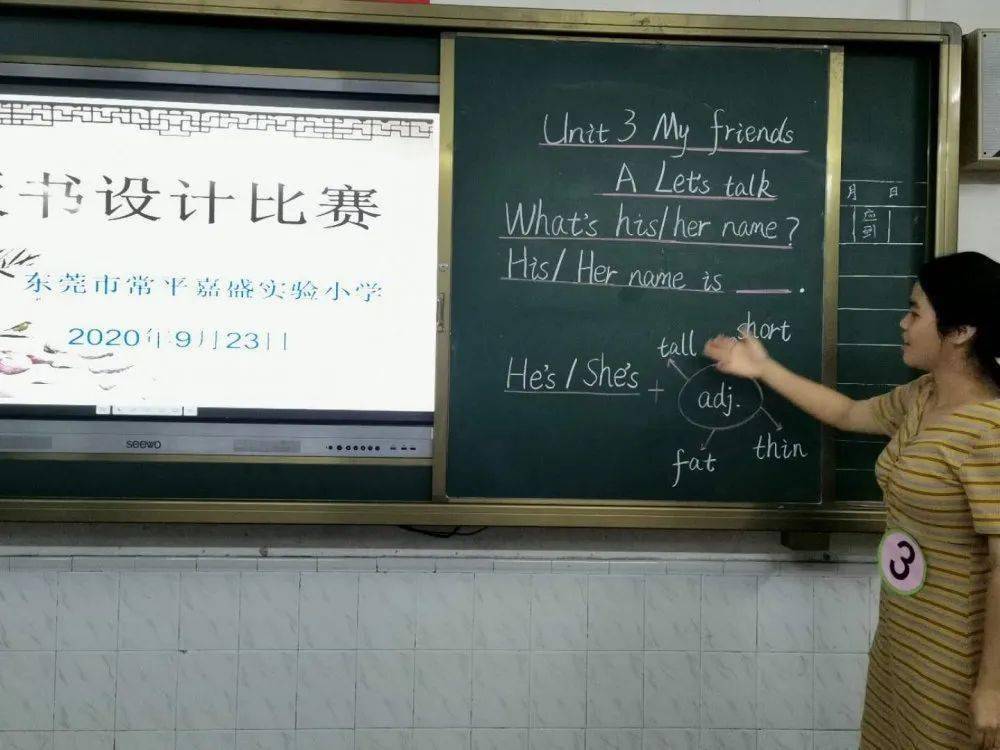 书设计比赛
东莞市常平嘉盛实验小学
2020年9月23日
seewo
Unit 3 My friends
A Let's talk
What's his/her name?
His/Her name is ____.
He's/She's +
adj.
tall
short
fat
thin
月 日
3